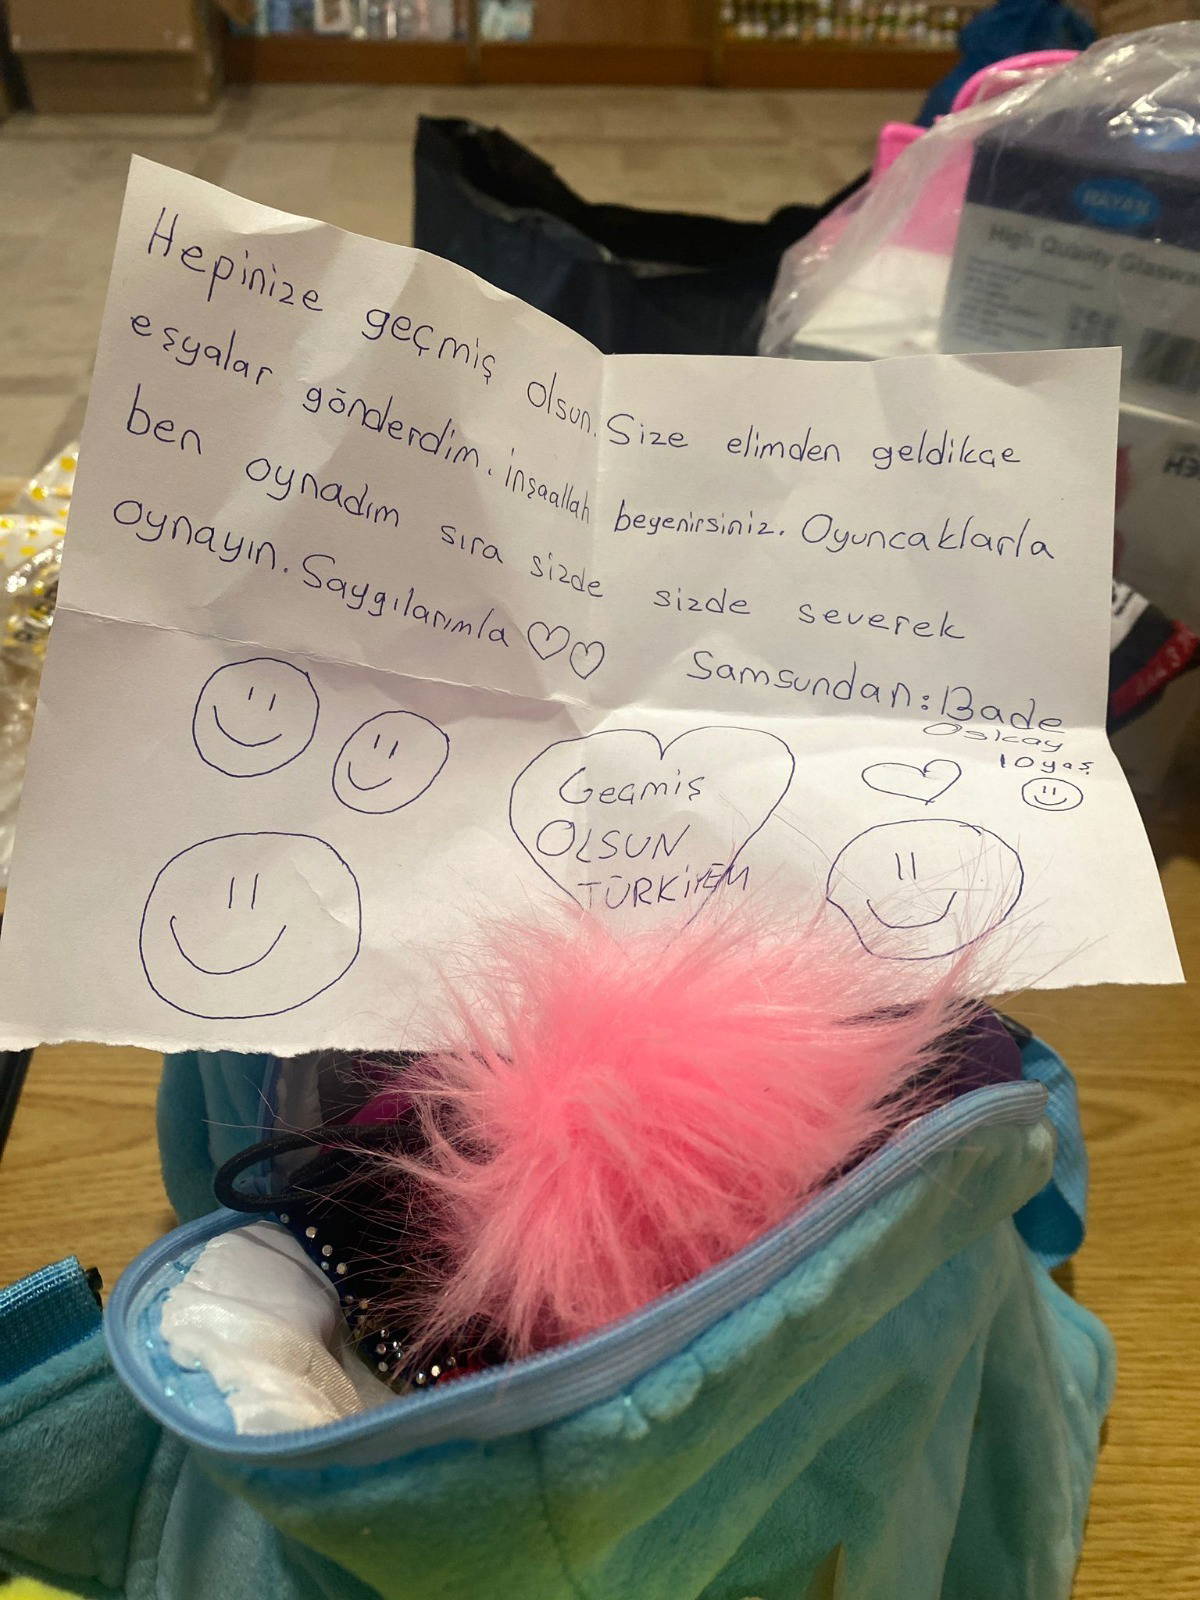 Hepinize geçmiş olsun. Size elimden geldikçe
eşyalar gönderdim. inşaallah beyenirsiniz. Oyuncaklarla
ben oynadım sıra sizde sizde severek
oynayın. Saygılarımla
Samsundan: Bade
Oskay
10 yaş
Geçmiş
OLSUN
TÜRKİYEM
High Quality